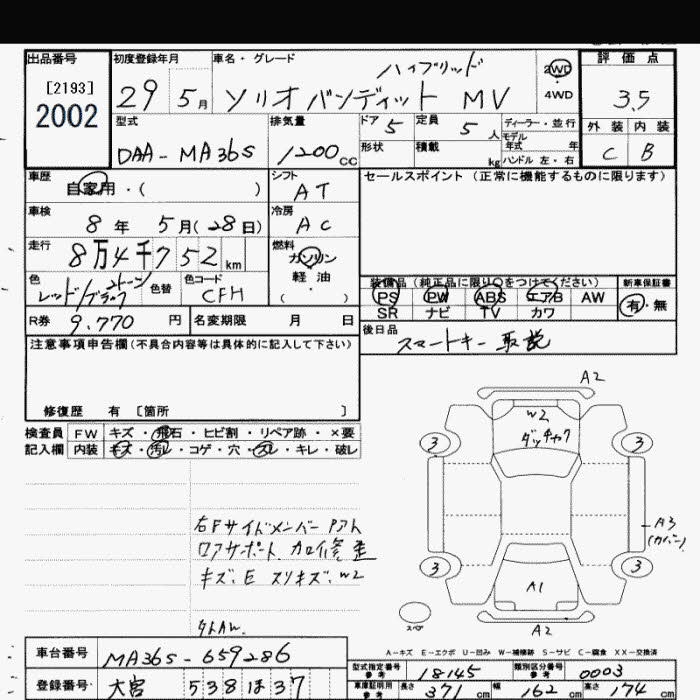 出品番号
[2193]
2002
初度登録年月
29 5月
車名・グレード
ハイブリッド
ソリオ バンディット MV
2WD
4WD
評価点
3.5
外装 内装
C B
型式
DAA-MA36S
排気量
1200cc
ドア 5
定員 5人
形状
積載 kg
ディーラー・並行
モデル年式 年
ハンドル 左・右
車歴
自家用・( )
シフト
AT
セールスポイント (正常に機能するものに限ります)
車検
8年 5月(28日)
冷房
AC
走行
8万4千752km
燃料
ガソリン
軽・油
( )
色
レッド/ブラック
2トーン
色替
色コード
CFH
装備品 (純正品に限り〇をつけてください)
PS PW ABS エアB AW
SR ナビ TV カワ
新車保証書
有・無
R券 9,770円
名変期限 月 日
後日品
スマートキー 取説
注意事項申告欄(不具合内容等は具体的に記入して下さい)
修復歴 有 〔箇所 〕
検査員 FW キズ・飛石・ヒビ割・リペア跡・×要
記入欄 内装 キズ・汚レ・コゲ・穴・スレ・キレ・破レ
右Fサイドメンバー アト
ロアサポート カロイ修正
キズ、E スリキズ、W2
外AW.
A2
W2
3
3
A3
(カバー)
3
3
A1
スペア
A2
A-キズ E-エクボ U-凹み W-補修跡 S-サビ C-腐食 XX-交換済
車台番号 MA36S-659286
登録番号 大宮 538 ほ 37
型式指定番号 参考 18145
類別区分番号 参考 0003
車庫証明用 参考
長さ 371cm
幅 162cm
高さ 174cm